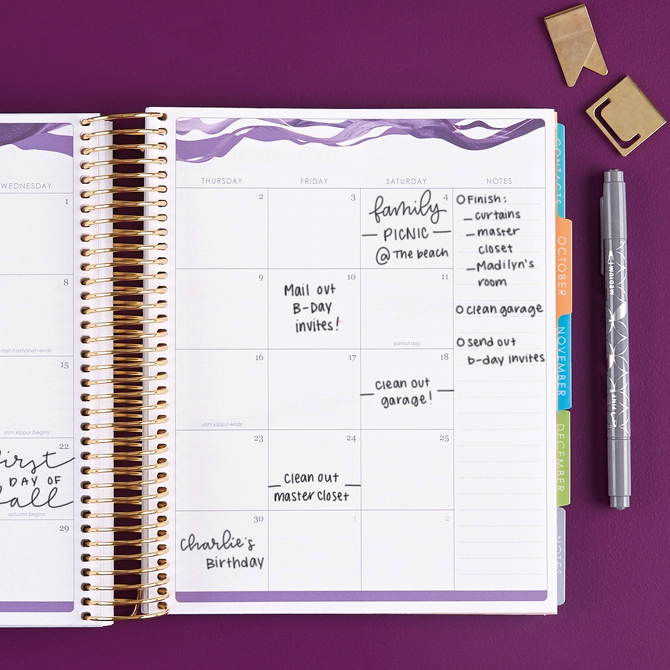 WEDNESDAY
1
8
rosh hashanah ends
15
yom kippur begins
22
First
DAY OF
Fall
autumn begins
29
THURSDAY
FRIDAY
SATURDAY
NOTES
2
3
4
family
PICNIC
@ The beach
9
10
Mail out
B-Day
invites!
11
patriot day
16
yom kippur ends
17
18
clean out
garage!
23
24
clean out
master closet
25
30
Charlie's
Birthday
1
2
Finish:
curtains
master
closet
Madilyn's
room
clean garage
send out
b-day invites
CONTACTS
OCTOBER
NOVEMBER
DECEMBER
NOTES